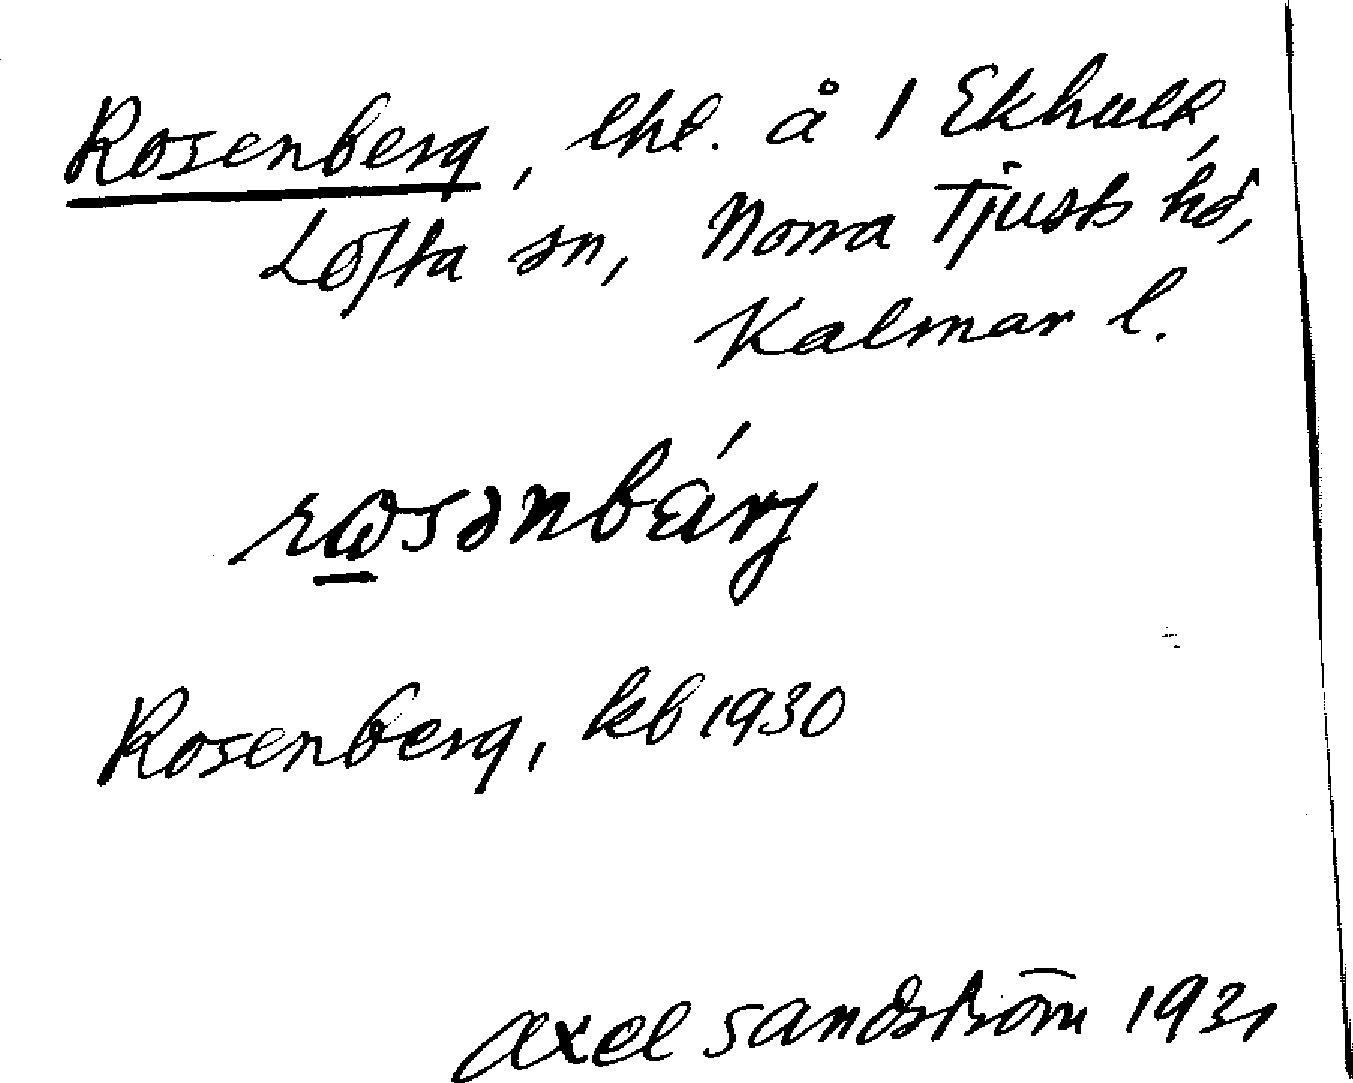 Rosenberg, lht. å 1 Ekhult,
Lofta sn, Norra Tjusts hd,
Kalmar l.
rωsənbárj
Rosenberg, kb 1930
Axel Sandström 1931